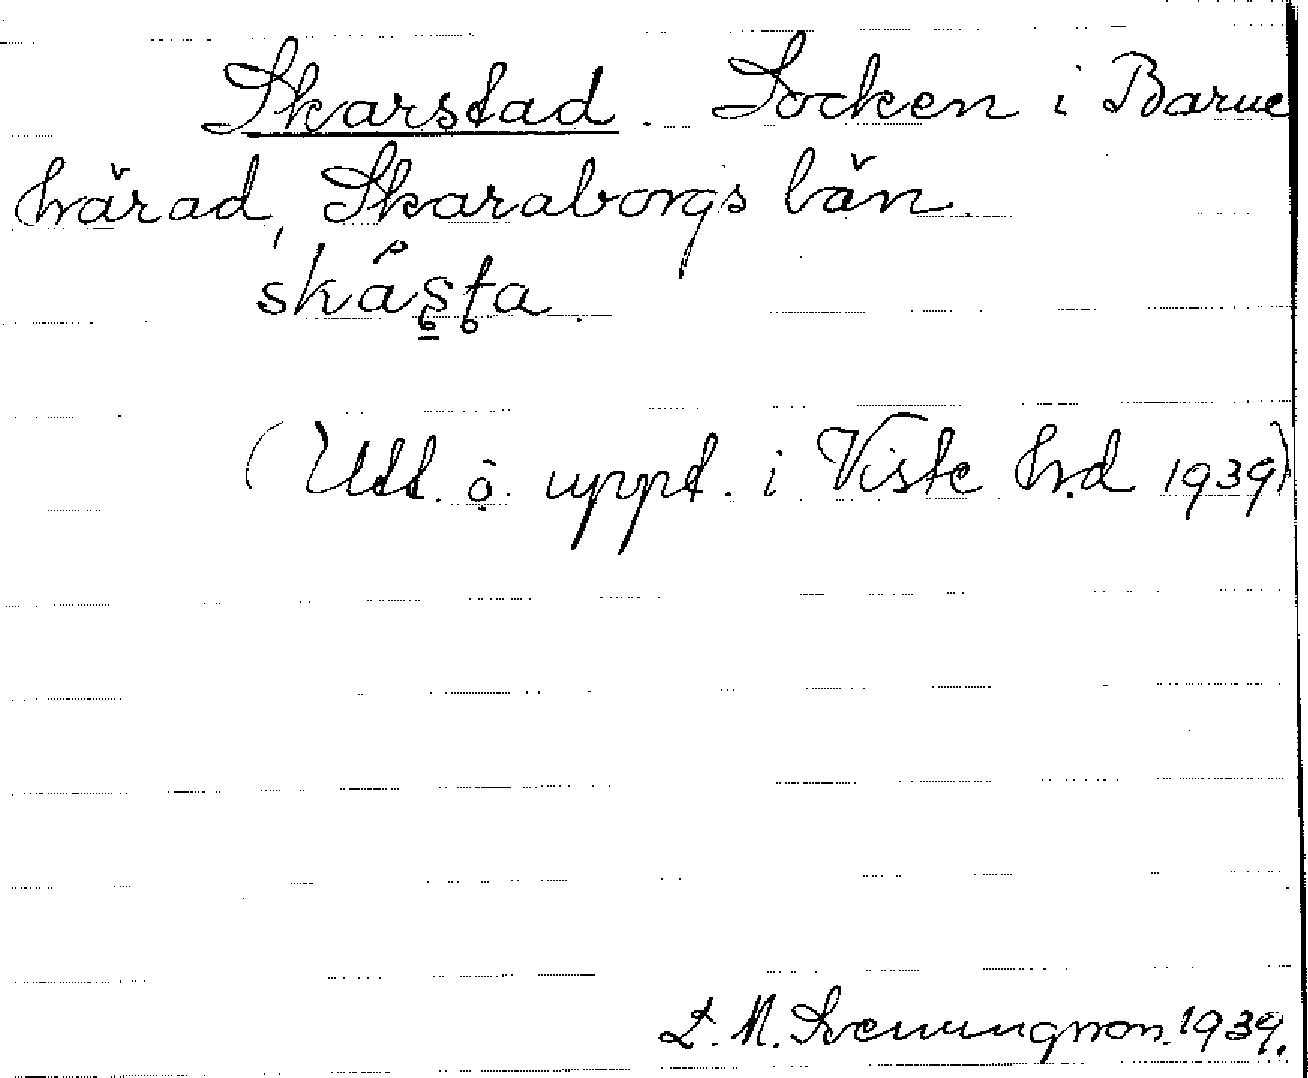 Skarstad. Socken i Barne
härad, Skaraborgs län.
skåsta.
(Utt. o. uppt. i Viste hd 1939)
L. M. Svenungsson. 1939.